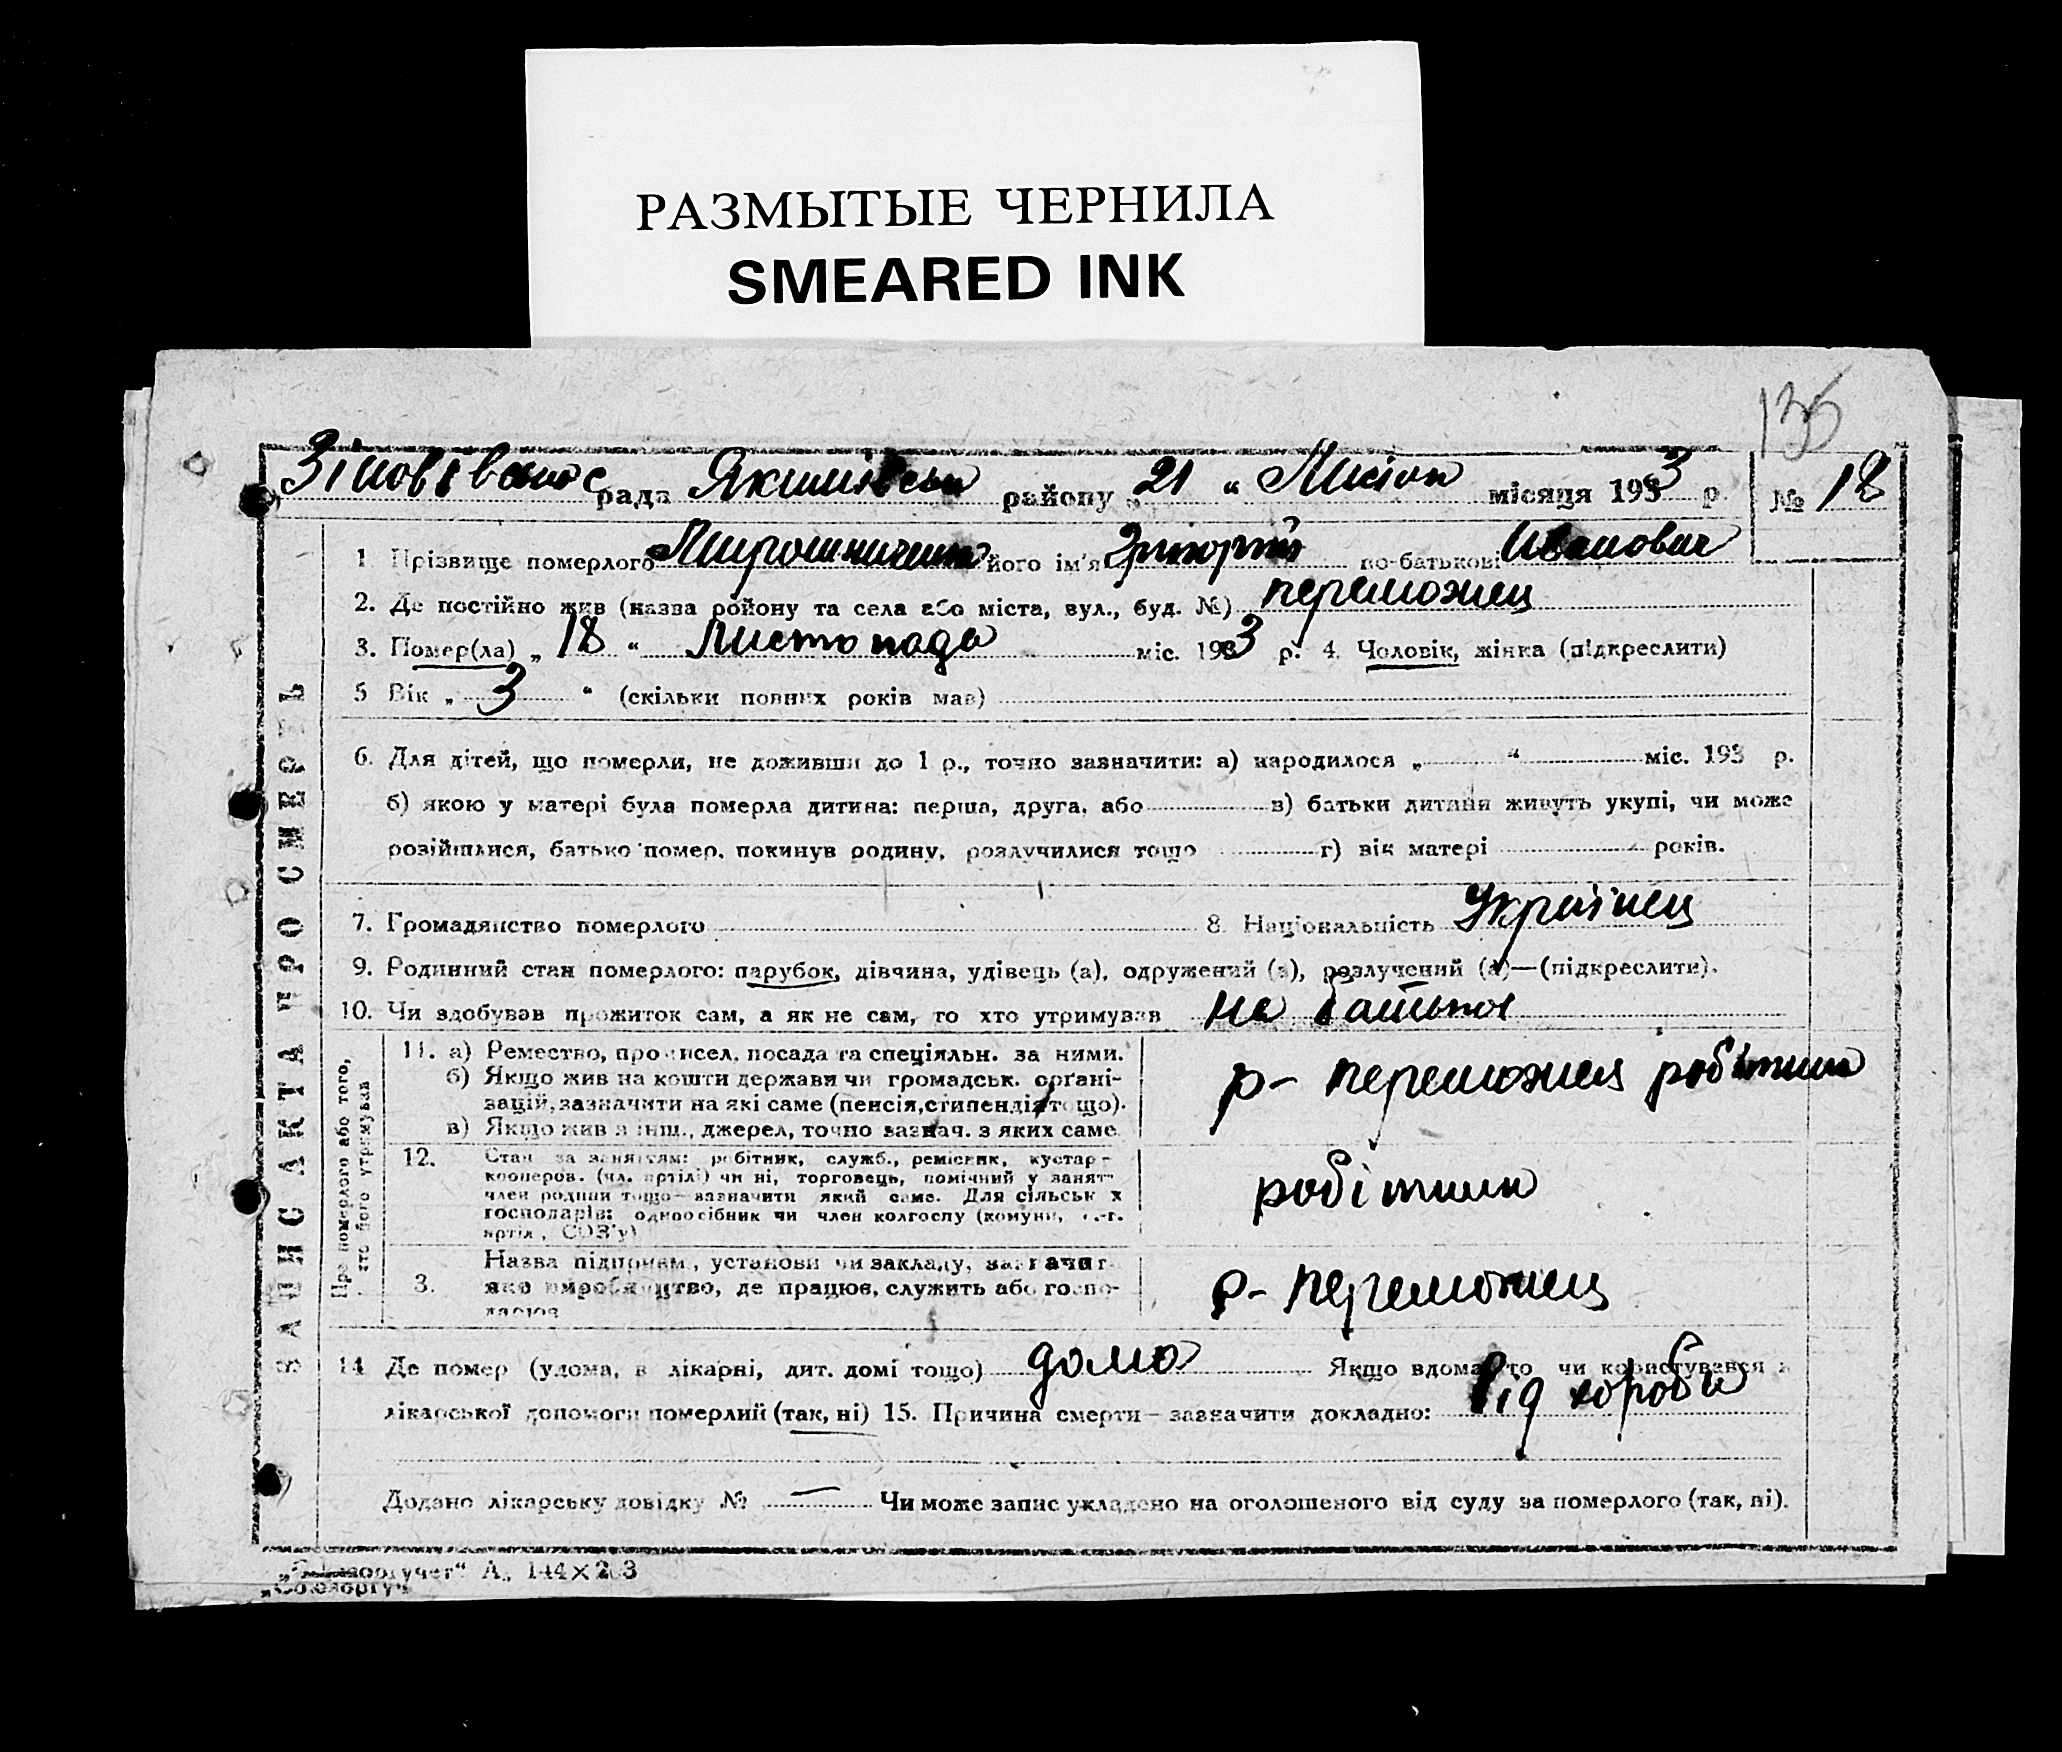 РАЗМЫТЫЕ ЧЕРНИЛА
SMEARED INK
135
рада Якимівськ району „ 21 “ місяця 1933 р. № 18
ЗАПИС АКТА ПРО СМЕРТЬ
1. Прізвище померлого Мирошниченко його ім'я Григорій по-батькові Иванович
2. Де постійно жив (назва району та села або міста, вул., буд. №) переможец
3. Помер(ла) „ 18 “ Листопада міс. 1933 р. 4. Чоловік, жінка (підкреслити)
5 Вік „ 3 “ (скільки повних років мав)
6. Для дітей, що померли, не доживши до 1 р., точно зазначити: а) народилося „ “ міс. 193 р.
б) якою у матері була померла дитина: перша, друга, або в) батьки дитини живуть укупі, чи може
розійшлися, батько помер, покинув родину, розлучилися тощо г) вік матері років.
7. Громадянство померлого 8. Національність Українец
9. Родинний стан померлого: парубок, дівчина, удівець (а), одружений (а), розлучений (а)—(підкреслити).
10. Чи здобував прожиток сам, а як не сам, то хто утримував на
Про померлого або того, хто його утримував
11. а) Ремество, промисел, посада та спеціяльн. за ними.
б) Якщо жив на кошти держави чи громадськ. органі-
зацій, зазначити на які саме (пенсія, стипендія тощо).
в) Якщо жив з інш., джерел, точно зазнач. з яких саме.
р- переможец робітник
12. Стан за заняттям: робітник, служб., ремісник, кустар-
кооперов. (чл. артілі) чи ні, торговець, помічний у занят.
член родини тощо—зазначити який саме. Для сільськ х
господарів: одноосібник чи член колгоспу (комуни, с.-г.
артіл., СОЗ'у)
робітник
3. Назва підприєм., установи чи закладу, зазначит.
яке виробництво, де працює, служить або госпо-
дарює
р- переможец
14 Де помер (удома, в лікарні, дит. домі тощо) дома Якщо вдома, то чи користувався з
лікарської допомоги померлий (так, ні) 15. Причина смерти—зазначити докладно: Від хороби
Додано лікарську довідку № — Чи може запис укладено на оголошеного від суду за померлого (так, ні).
„Союзоргучет“ А. 144×203
„Союзоргуч